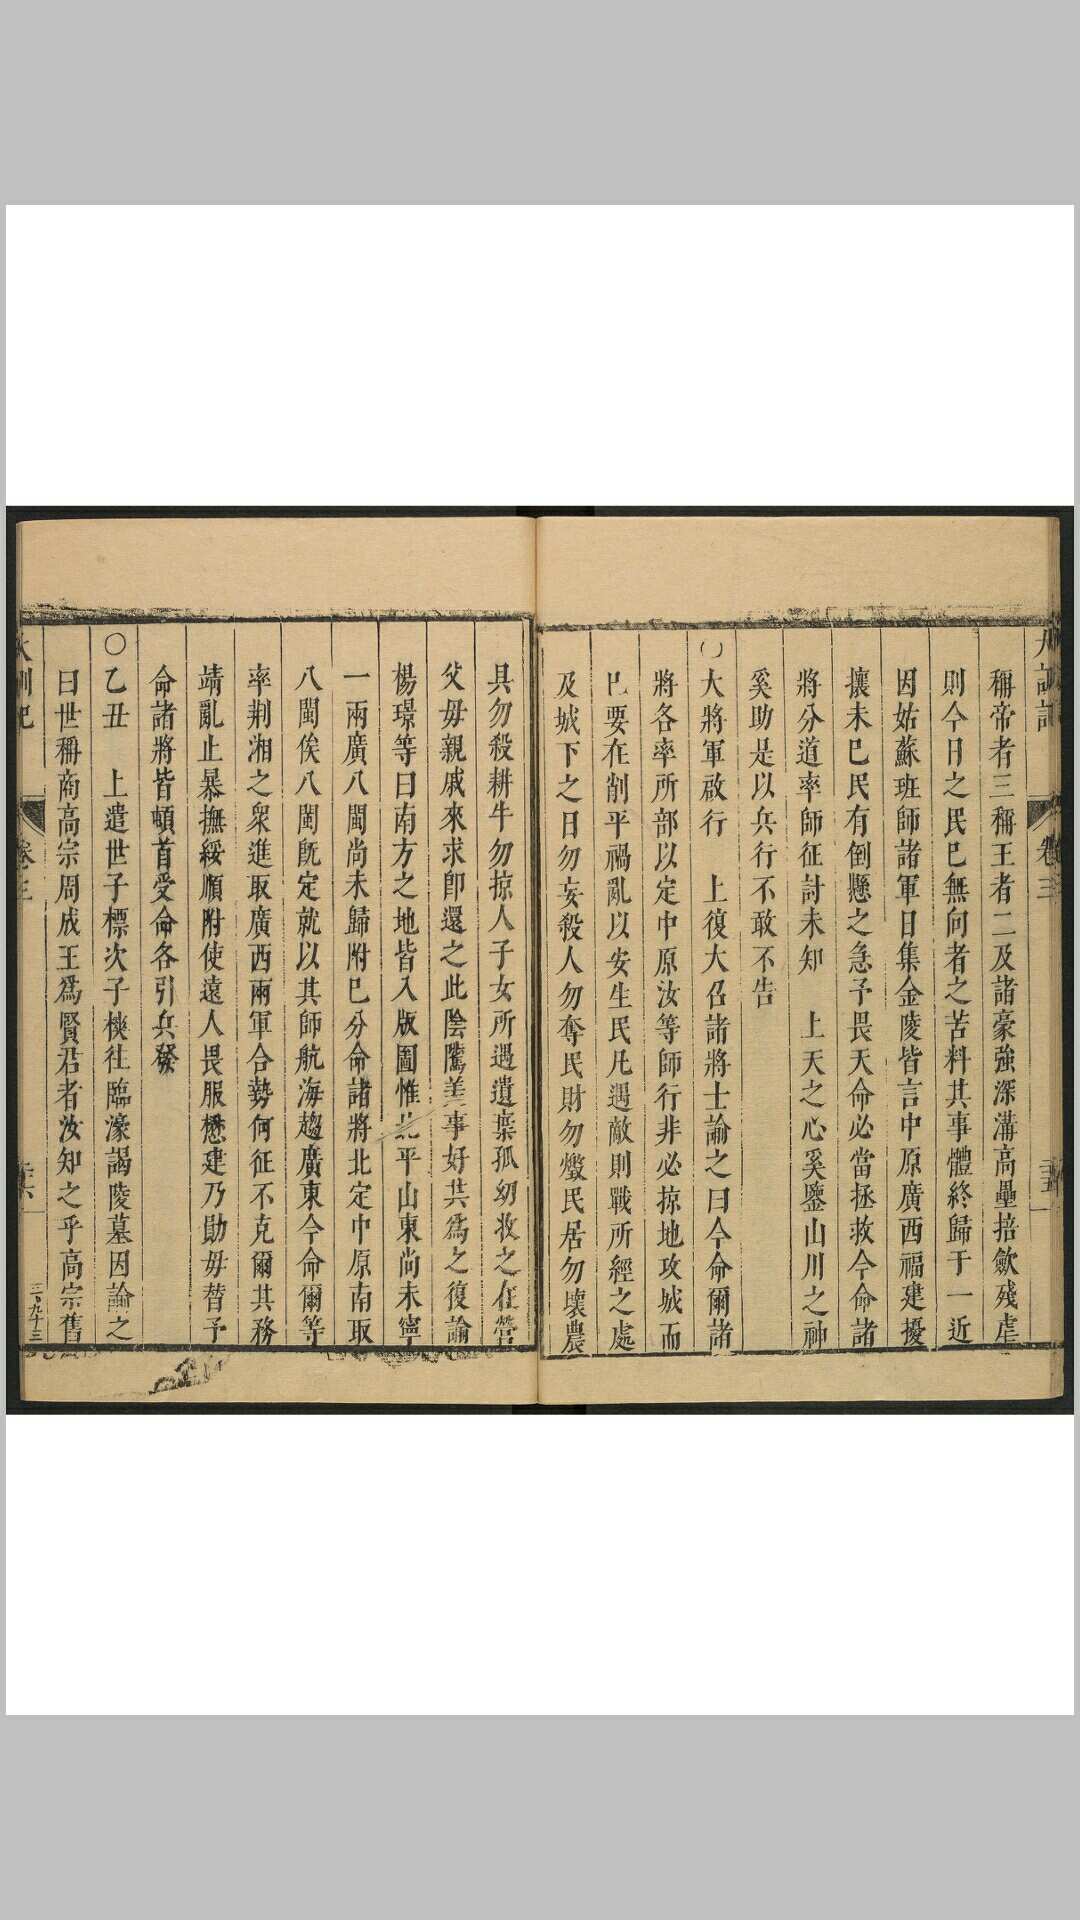 卷三
稱帝者三稱王者二及諸豪強深溝高壘掊歛殘虐
則今日之民已無向者之苦料其事體終歸于一近
因姑蘇班師諸軍日集金陵皆言中原廣西福建擾
攘未已民有倒懸之急予畏天命必當拯救今命諸
將分道率師征討未知　上天之心奚鑒山川之神
奚助是以兵行不敢不告
○大將軍啟行　上復大召諸將士諭之曰今命爾諸
將各率所部以定中原汝等師行非必掠地攻城而
已要在削平禍亂以安生民凡遇敵則戰所經之處
及城下之日勿妄殺人勿奪民財勿燬民居勿壞農
具勿殺耕牛勿掠人子女所遇遺棄孤幼收之在營
父母親戚來求即還之此陰隲美事好共為之復諭
楊璟等曰南方之地皆入版圖惟北平山東尚未寧
一兩廣八閩尚未歸附已分命諸將北定中原南取
八閩俟八閩既定就以其師航海趨廣東今命爾等
率荆湘之衆進取廣西兩軍合勢何征不克爾其務
靖亂止暴撫綏順附使遠人畏服懋建乃勛毋替予
命諸將皆頓首受命各引兵發
○乙丑　上遣世子標次子樉往臨濠謁陵墓因諭之
曰世稱商高宗周成王為賢君者汝知之乎高宗舊
卷三
三、九十三